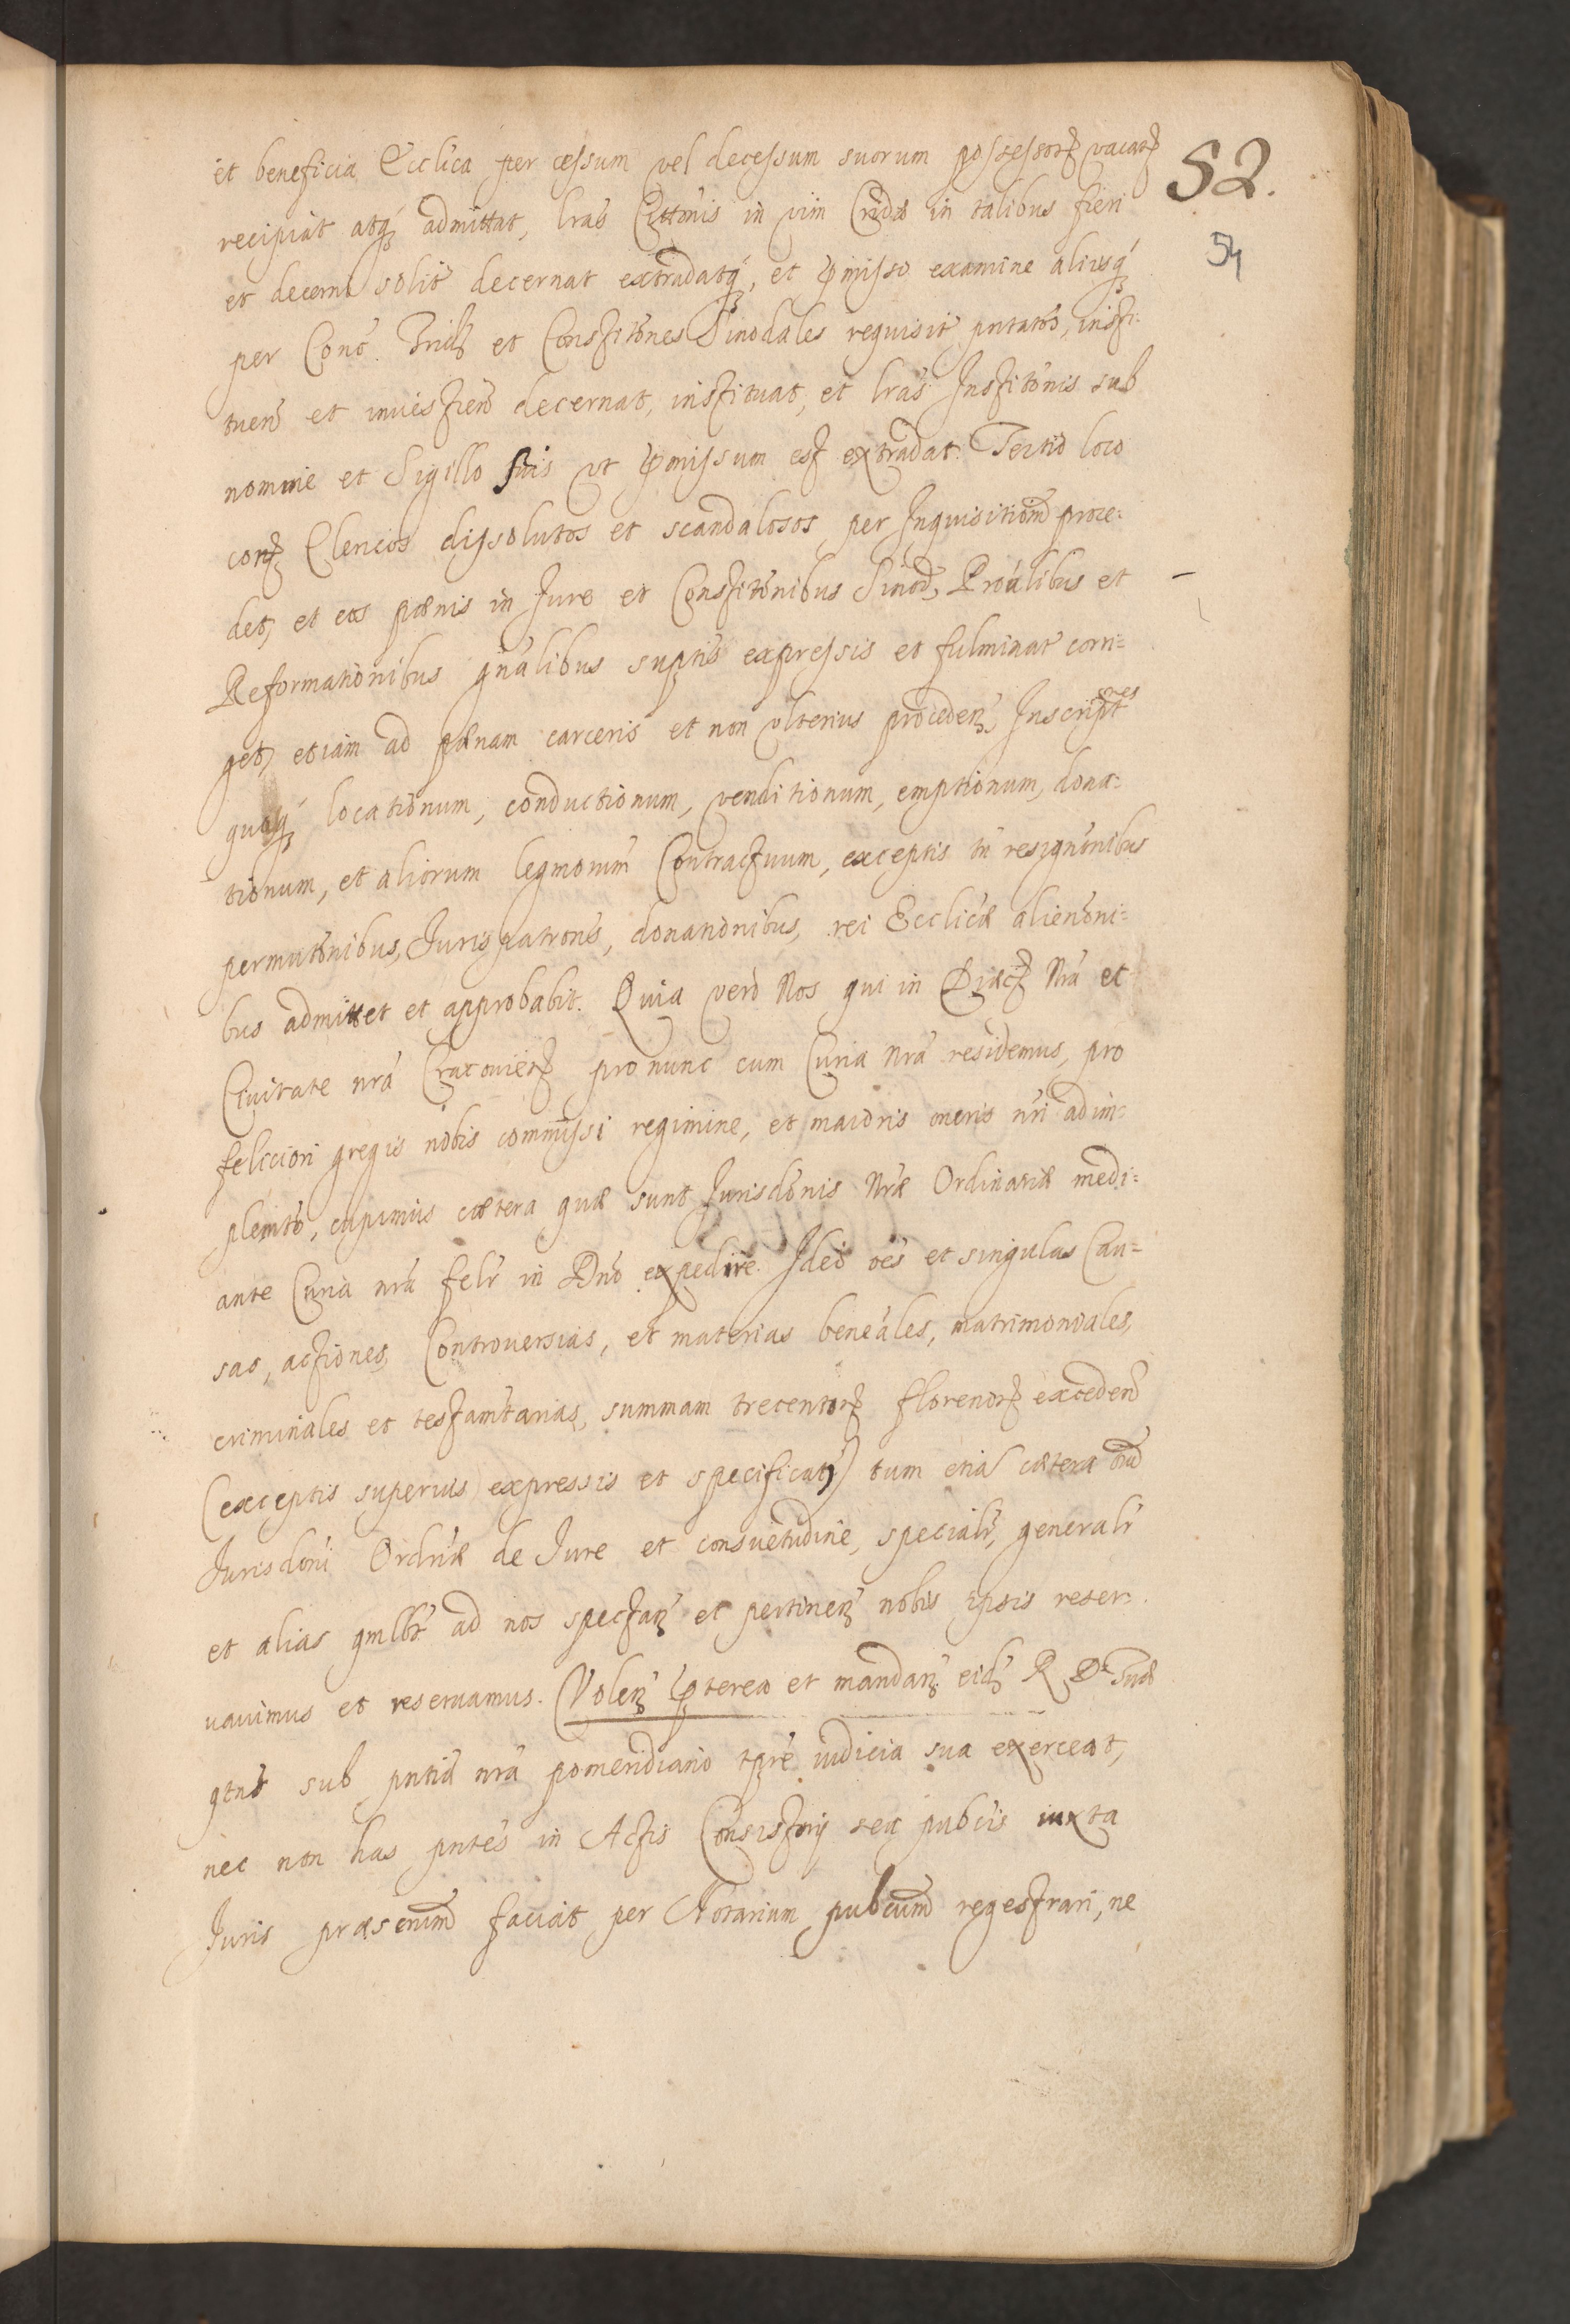 et beneficia Ecclica per cessum vel decessum suorum possessorꝝ vacanꝭ
52.
recipiat atqꝫ admittat, lras Cittonis in vim Cridæ in talibus fieri
54
et decerni solit decernat extradatqꝫ, et p̱misso examine alijsqꝫ
per Conc. Tridꝫ et Consti͠tones Sinodales requisit pntatos, insti
tuend et inuestiend decernat, instituat, et lras Institonis sub
nomine et Sigillo suis vt p̱missum est extradat. Tertio loco
 Clericos dissolutos et scandalosos per Inquisitionem proce:
det, et eos pænis in Jure et Constitonibus Sinod, Proalibus et
Reformationibus gnalibus suptis expressis et fulminat corri=
get, etiam ad pænam carceris et non vlterius procedenꝭ, Inscriptnes
quoqꝫ locationum, conductionum, venditionum, emptionum, dona=
tionum, et aliorum legmorum Contractuum, exceptis tn resignonibus
permutonibus, Juris patrons, donationibus, rei Ecclicæ alienoni=
bus admittet et approbabit. Quia vero Nos qui in Diæcꝭ Nra et
Ciuitate nra Cracouien pro nunc cum Curia nra residemus, pro
feliciori gregis nobis commissi regimine, et maioris oneris nri adim=
plemto, cupimus cætera quæ sunt Jurisdonis Nræ Ordinariæ medi=
ante Curia nra felr in Dno expedire. Ideo oes et singulas Cau=
sas, actiones, Controuersias, et materias beneales, matrimoniales,
criminales et testamtarias, summam trecentorꝝ florenorꝝ excedend
(exceptis superius expressis et specificatꝭ) tum etia cætera oia
Jurisdoni Ordriæ de Jure et consuetudine, specialr, generalr
et alias qmlbt ad nos spectanꝭ et pertinenꝭ nobis ipsis reser=
vauimus et reseruamus. Volenꝭ p̱terea et mandanꝭ eidꝫ R. D. Suæ
qtns sub pntia nra pomeridiano tpre iudicia sua exerceat,
nec non has pntes in Actis Consistorij seu publcis iuxta
Juris præscrium faciat per Notarium publcum regestrari, ne